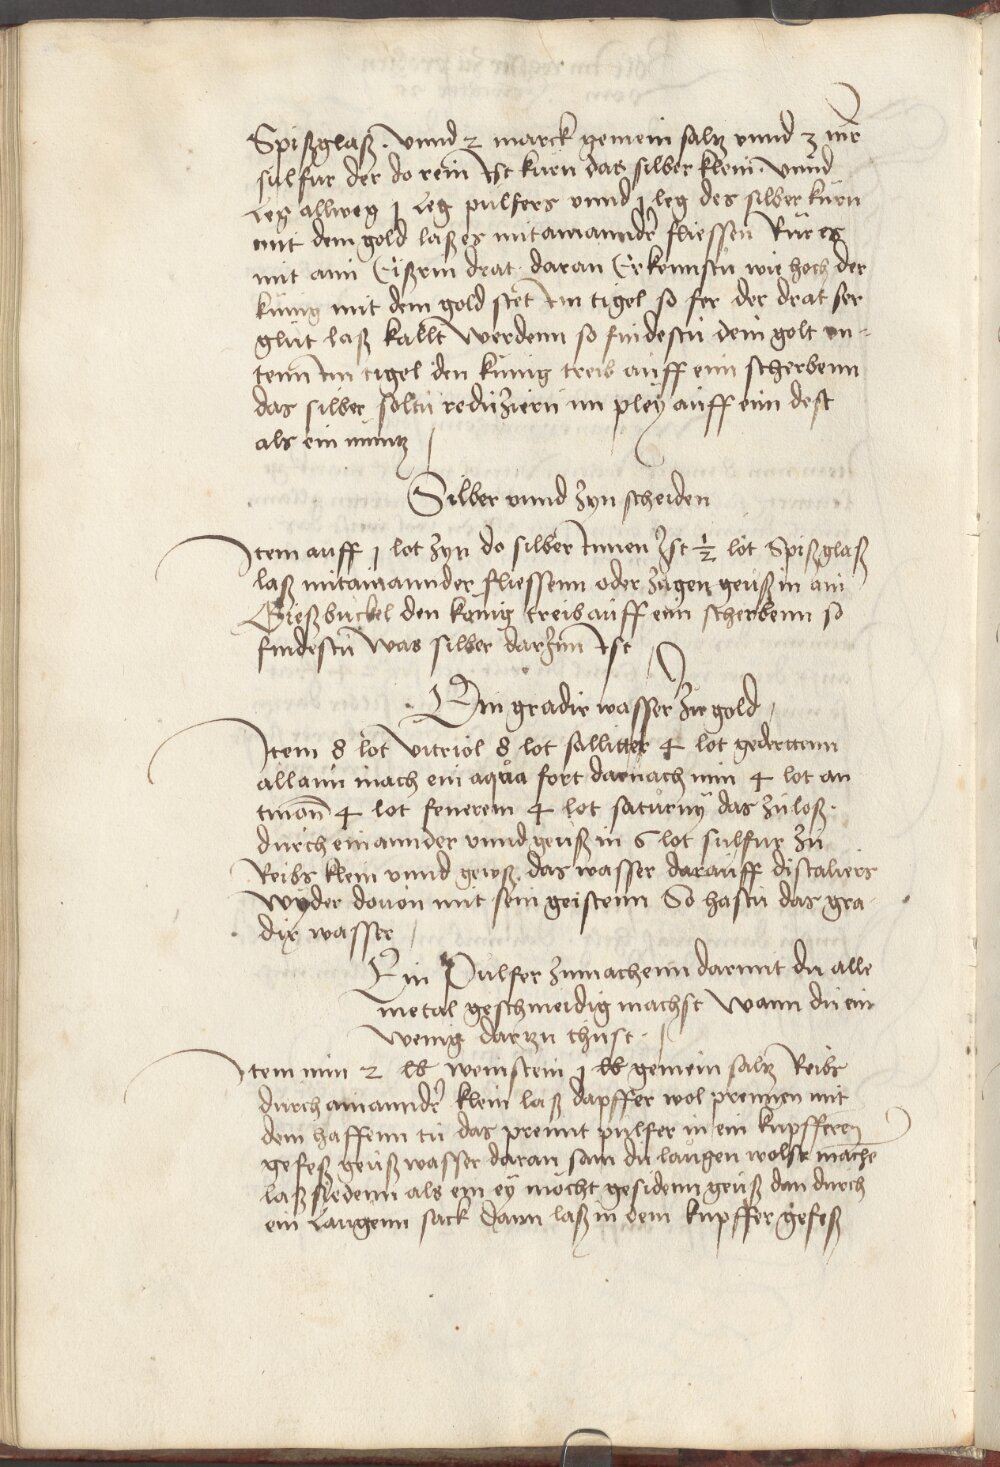 Spißglaß. vnnd 2 marck gemein saltz vnnd 3 mr
sulfur der do rein Ist kürn das silber klein. vnnd
Leg allweg j Leg pulfers vnnd j leg des silber kürn
mit dem gold laß es mitamanndr fliessen Rür es
mit aim Eißrin drat. daran Erkennstu wie hoch der
küng mit dem gold stet Im tigel so fer der drat ser
glüt laß kallt werdenn so findestu dein golt vn-
tenn Im tigel den künig treib auff ein scherbenn
das silber soltu reduziern im pley auff einn dest
als ein müntz
Silber vnnd zyn scheiden
Item auff j lot zyn do silber Innen Ist ½ lot Spißglaß
laß mitamannder fliessenn oder geüß in ain
Gießbuckel den könig treib auff ein scherbenn so
findestu was silber darInn Ist
Ein gradir wasser zu gold
Item 8 lot vitriol 8 lot sallitter 4 lot gederttenn
allaun mach ein aqua fort darnach nim 4 lot an
timon 4 lot fenerem 4 lot saturny das zuloß.
durch einannder vnnd geüß in 6 lot sulfur zu
Reibs klein vnnd gewß das wasser darauff distaliers
wyder douon mit sein geistenn So hastu das gra
dir wasser
Ein Pulfer zumachenn darmit du alle
metal geschmeidig machst wann du ein
wenig dartzu thust.
Item nim 2 lb weinstein j lb gemein saltz Reibs
durch amanndr klein laß dapffer wol prennen mit
dem haffenn tu das prennt pulfer in ein kupfferen
gefeß geüß wasser daran sam du laugen wolst mache
laß siedenn als ein ey möcht gesidenn geüß dan durch
ein Laugenn sack dann laß in dem kupffer gefeß